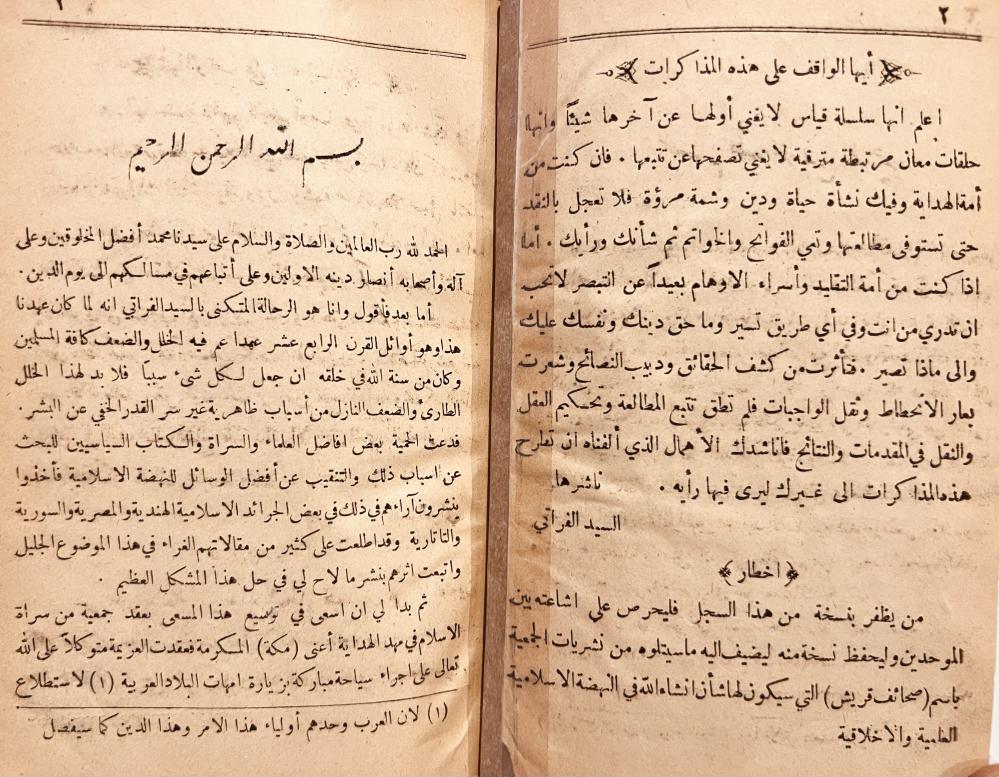 ٢
أيها الواقف على هذه المذاكرات
اعلم انها سلسلة قياس لا يغني أولها عن آخرها شيئًا وانها
حلقات معان مرتبطة مترقية لا يغني تصفحها عن تتبعها . فان كنت من
أمة الهداية وفيك نشأة حياة ودين وشمة مرؤة فلا تعجل بالنقد
حتى تستوفي مطالعتها وتعي الفواتح والخواتم ثم شأنك ورأيك . أما
اذا كنت من أمة التقليد وأسراء الاوهام بعيداً عن التبصر لا تحب
ان تدري من انت وفي أي طريق تسير وما حق دينك ونفسك عليك
والى ماذا تصير . فتأثرت من كشف الحقائق ودبيب النصائح وشعرت
بعار الانحطاط وثقل الواجبات فلم تطق تتبع المطالعة وتحكيم العقل
والنقل في المقدمات والنتائج فاناشدك الاهمال الذي ألفناه ان تطرح
هذه المذاكرات الى غيرك ليرى فيها رأيه . ناشرها
السيد الفراتي
﴿ اخطار ﴾
من يظفر بنسخة من هذا السجل فليحرص على اشاعته بين
الموحدين وليحفظ نسخة منه ليضيف اليه ما سيتلوه من نشريات الجمعية
باسم (صحائف قريش) التي سيكون لها شأن انشاء الله في النهضة الاسلامية
العلمية والاخلاقية
بسم الله الرحمن الرحيم
الحمد لله رب العالمين والصلاة والسلام على سيدنا محمد أفضل المخلوقين وعلى
آله وأصحابه أنصار دينه الاولين وعلى أتباعهم في مسالكهم الى يوم الدين .
أما بعد فأقول وانا هو الرحالة المتكنى بالسيد الفراتي انه لما كان عهدنا
هذا وهو أوائل القرن الرابع عشر عهدا عم فيه الخلل والضعف كافة المسلمين
وكان من سنة الله في خلقه ان جعل لكل شىء سببا فلا بد لهذا الخلل
الطارئ والضعف النازل من أسباب ظاهرية غير سر القدر الخفي عن البشر .
فدعت الحمية بعض افاضل العلماء والسراة والكتاب السياسيين للبحث
عن اسباب ذلك والتنقيب عن أفضل الوسائل للنهضة الاسلامية فأخذوا
ينشرون آراءهم في ذلك في بعض الجرائد الاسلامية الهندية والمصرية والسورية
والتاتارية وقد اطلعت على كثير من مقالاتهم الغراء في هذا الموضوع الجليل
واتبعت اثرهم بنشر ما لاح لي في حل هذا المشكل العظيم .
ثم بدا لي ان اسعى في توسيع هذا المسعى بعقد جمعية من سراة
الاسلام في مهد الهداية أعنى (مكة) المكرمة فعقدت العزيمة متوكلاً على الله
تعالى على اجراء سياحة مباركة بزيارة امهات البلاد العربية (١) لاستطلاع
(١) لان العرب وحدهم أولياء هذا الامر وهذا الدين كما سيفصل